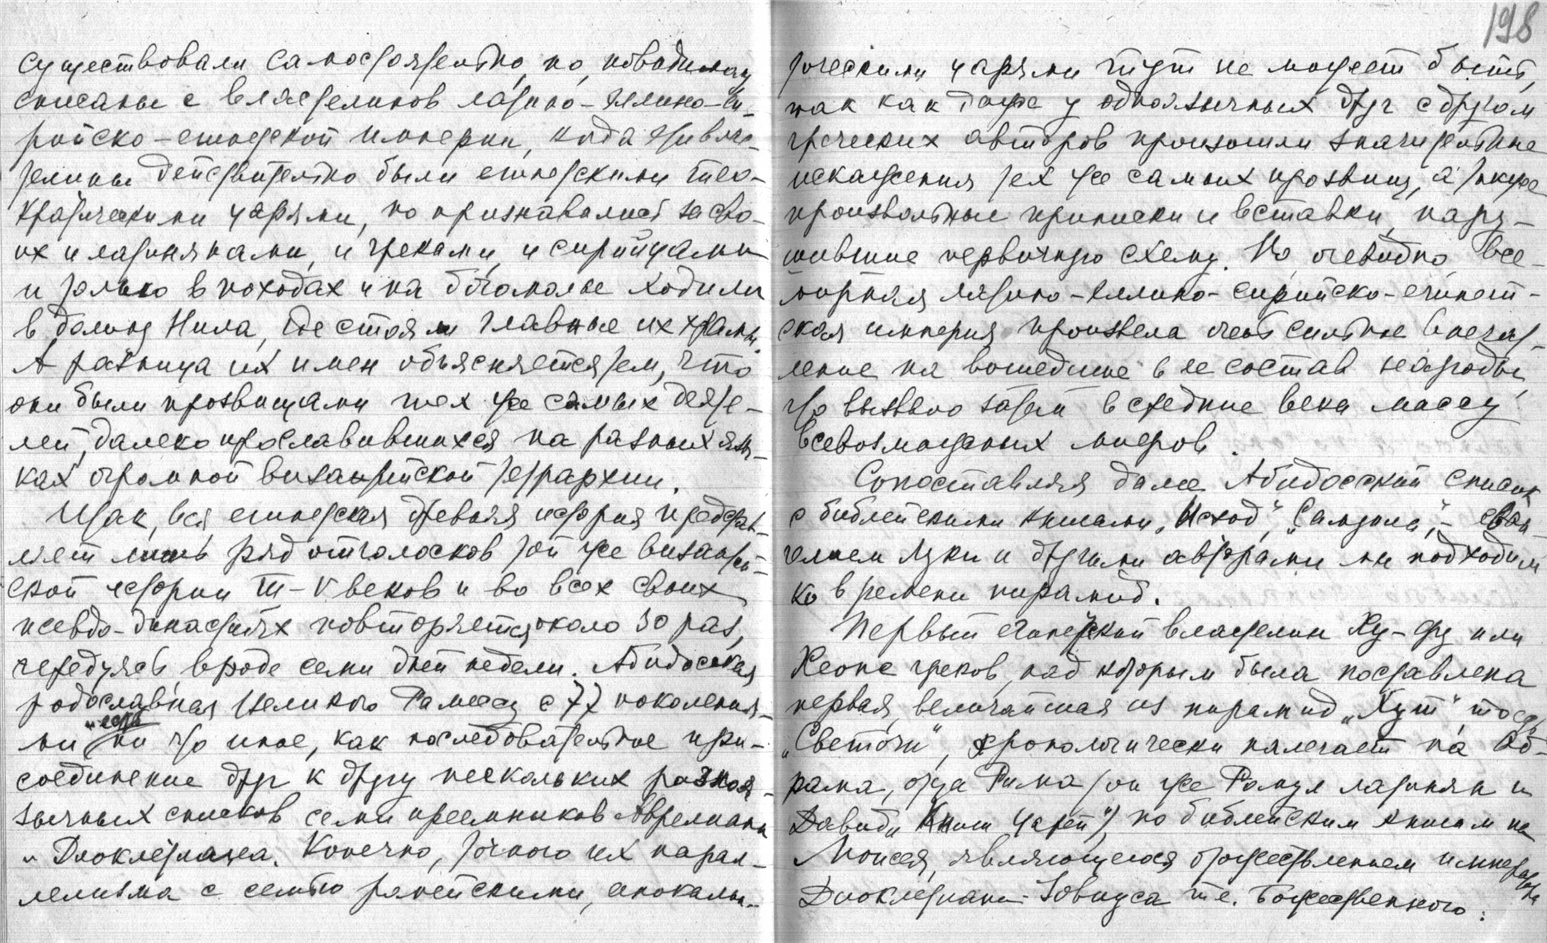 существовали самостоятельно, но, повидимому
списаны с властелинов латино-эллино-си-
рийско-египетской империи, когда эти власт-
телины действительно были египетскими тео-
кратическими царями, но признавались за сво-
их и латинянами, и греками, и сирийцами
и только в походах и на богомолье ходили
в долину Нила, где стояли главные их храмы.
А разница их имен объясняется тем, что
они были прозвищами тех же самых деяте-
лей, далеко прославившихся на разных язы-
ках огромной византийской иерархии.
Итак, вся египетская древняя история представ-
ляет лишь ряд отголосков той же византий-
ской истории III-V веков и во всех своих
псевдо-династиях повторяется около 30 раз,
чередуясь вроде семи дней недели. Абидосская
родословная Великого Рамзеса с 77 поколения-
ми есть ни что иное, как последовательное при-
соединение друг к другу нескольких разноя-
зычных списков семи преемников Аврелиана
и Диоклетиана. Конечно, точного их парал-
лелизма с семью ромейскими, апокалип-
198
тическими царями тут не может быть,
так как даже у одноязычных друг с другом
греческих авторов произошли значительные
искажения тех же самых прозвищ, а также
произвольные приписки и вставки, нару-
шившие первичную схему. Но, очевидно, все-
мирная латино-эллино-сирийско-египет-
ская империя произвела очень сильное впечат-
ление на вошедшие в ее состав народы,
что вызвало затем в средние века массу
всевозможных мифов.
Сопоставляя далее Абидосский список
с библейскими книгами „Исход", „Самуила", – еван-
гелием Луки и другими авторами мы подходим
ко времени пирамид.
Первый египетский властелин Ху-фу или
Хеопс греков, над которым была поставлена
первая, величайшая из пирамид „Хут", то есть
„Светоч", хронологически налегает на Аб-
рама, отца Рима (он же Ромул латинян и
Давид „Книги Царей"), по библейским книгам на
Моисея, являющегося божественным императором
Диоклетиана Иовиуса т.е. Божественного.